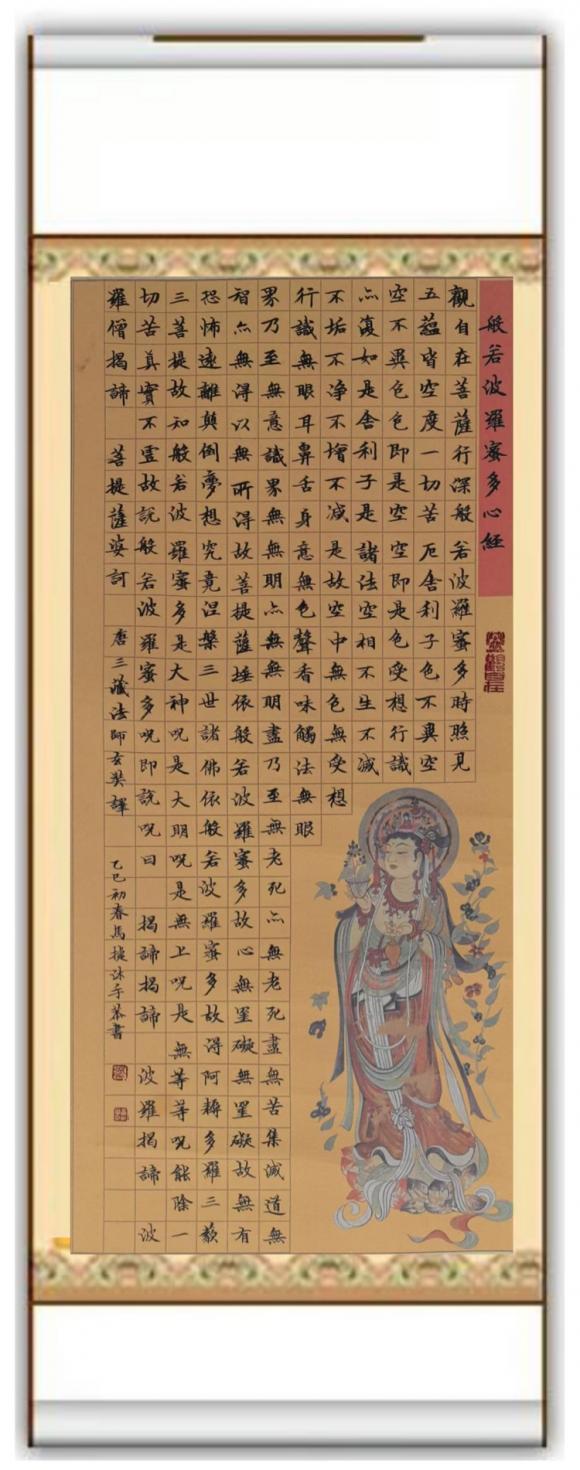 般若波羅蜜多心経
觀自在菩薩行深般若波羅蜜多時照見
五蘊皆空度一切苦厄舍利子色不異空
空不異色色即是空空即是色受想行識
亦復如是舍利子是諸法空相不生不滅
不垢不净不增不减是故空中無色無受想
行識無眼耳鼻舌身意無色聲香味觸法無眼
界乃至無意識界無無明亦無無明盡乃至無老死亦無老死盡無苦集滅道無
智亦無得以無所得故菩提薩埵依般若波羅蜜多故心無罣礙無罣礙故無有
恐怖遠離顛倒夢想究竟涅槃三世諸佛依般若波羅蜜多故得阿耨多羅三藐
三菩提故知般若波羅蜜多是大神呪是大明呪是無上呪是無等等呪能除一
切苦真實不虛故說般若波羅蜜多呪即說呪曰 揭諦揭諦 波羅揭諦 波
羅僧揭諦 菩提薩婆訶 唐三藏法師玄奘譯 乙巳初春馬捷沐手恭書